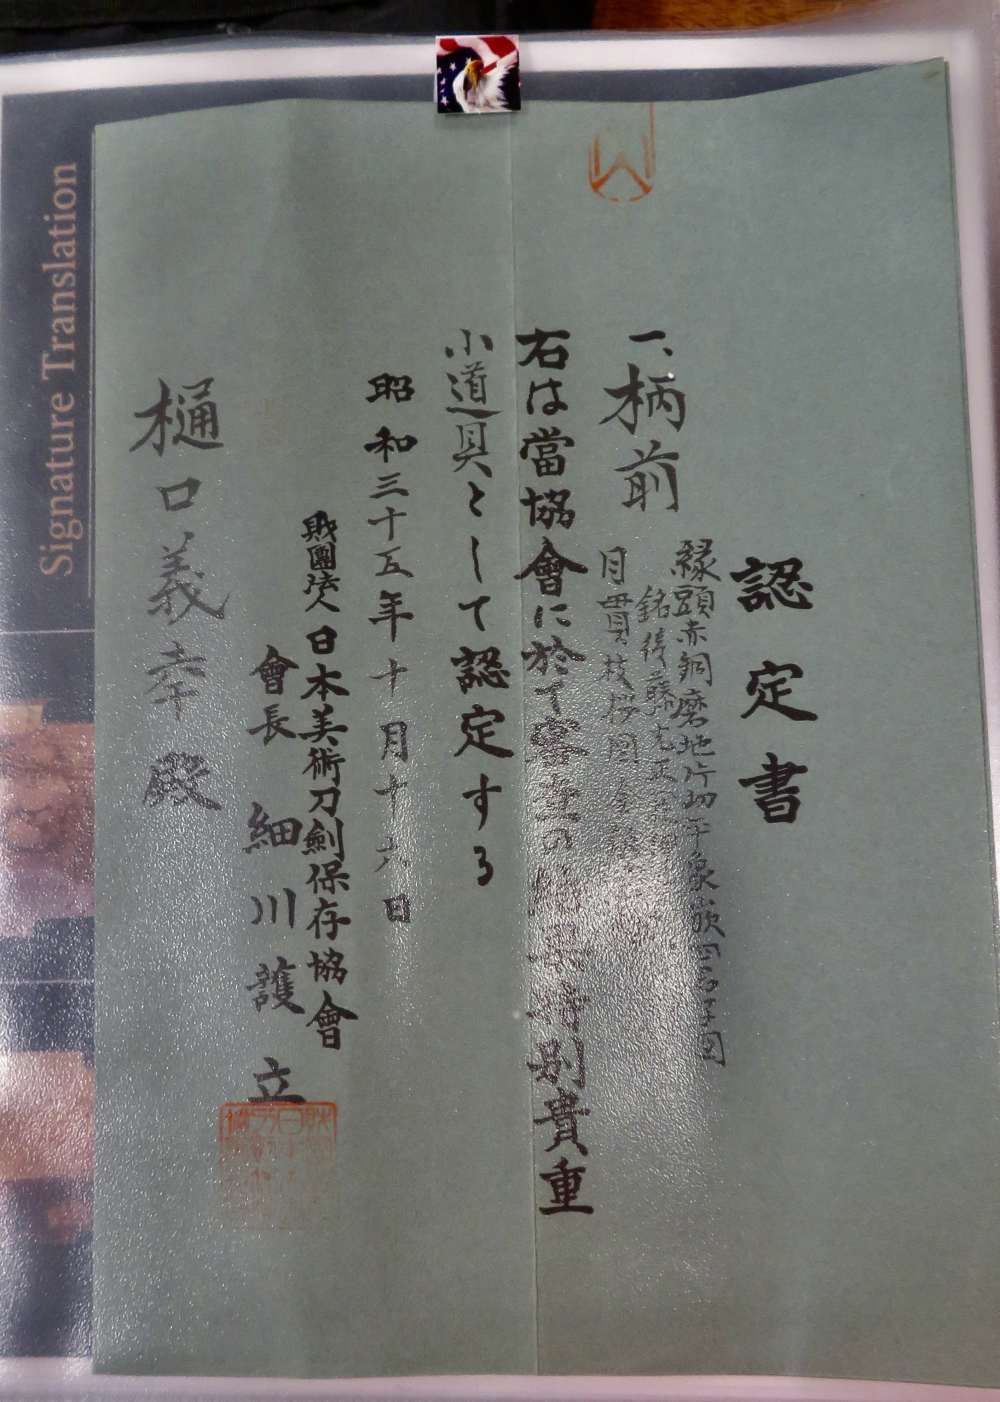 認定書
一、柄前
縁頭赤銅磨地片切平象嵌四君子図
銘後藤光正
目貫枝桜図金
右は當協會に於て審査の結果特別貴重
小道具として認定する
昭和三十五年十月十六日
財團法人日本美術刀劍保存協會
會長 細川護立
樋口義幸殿
Signature Translation